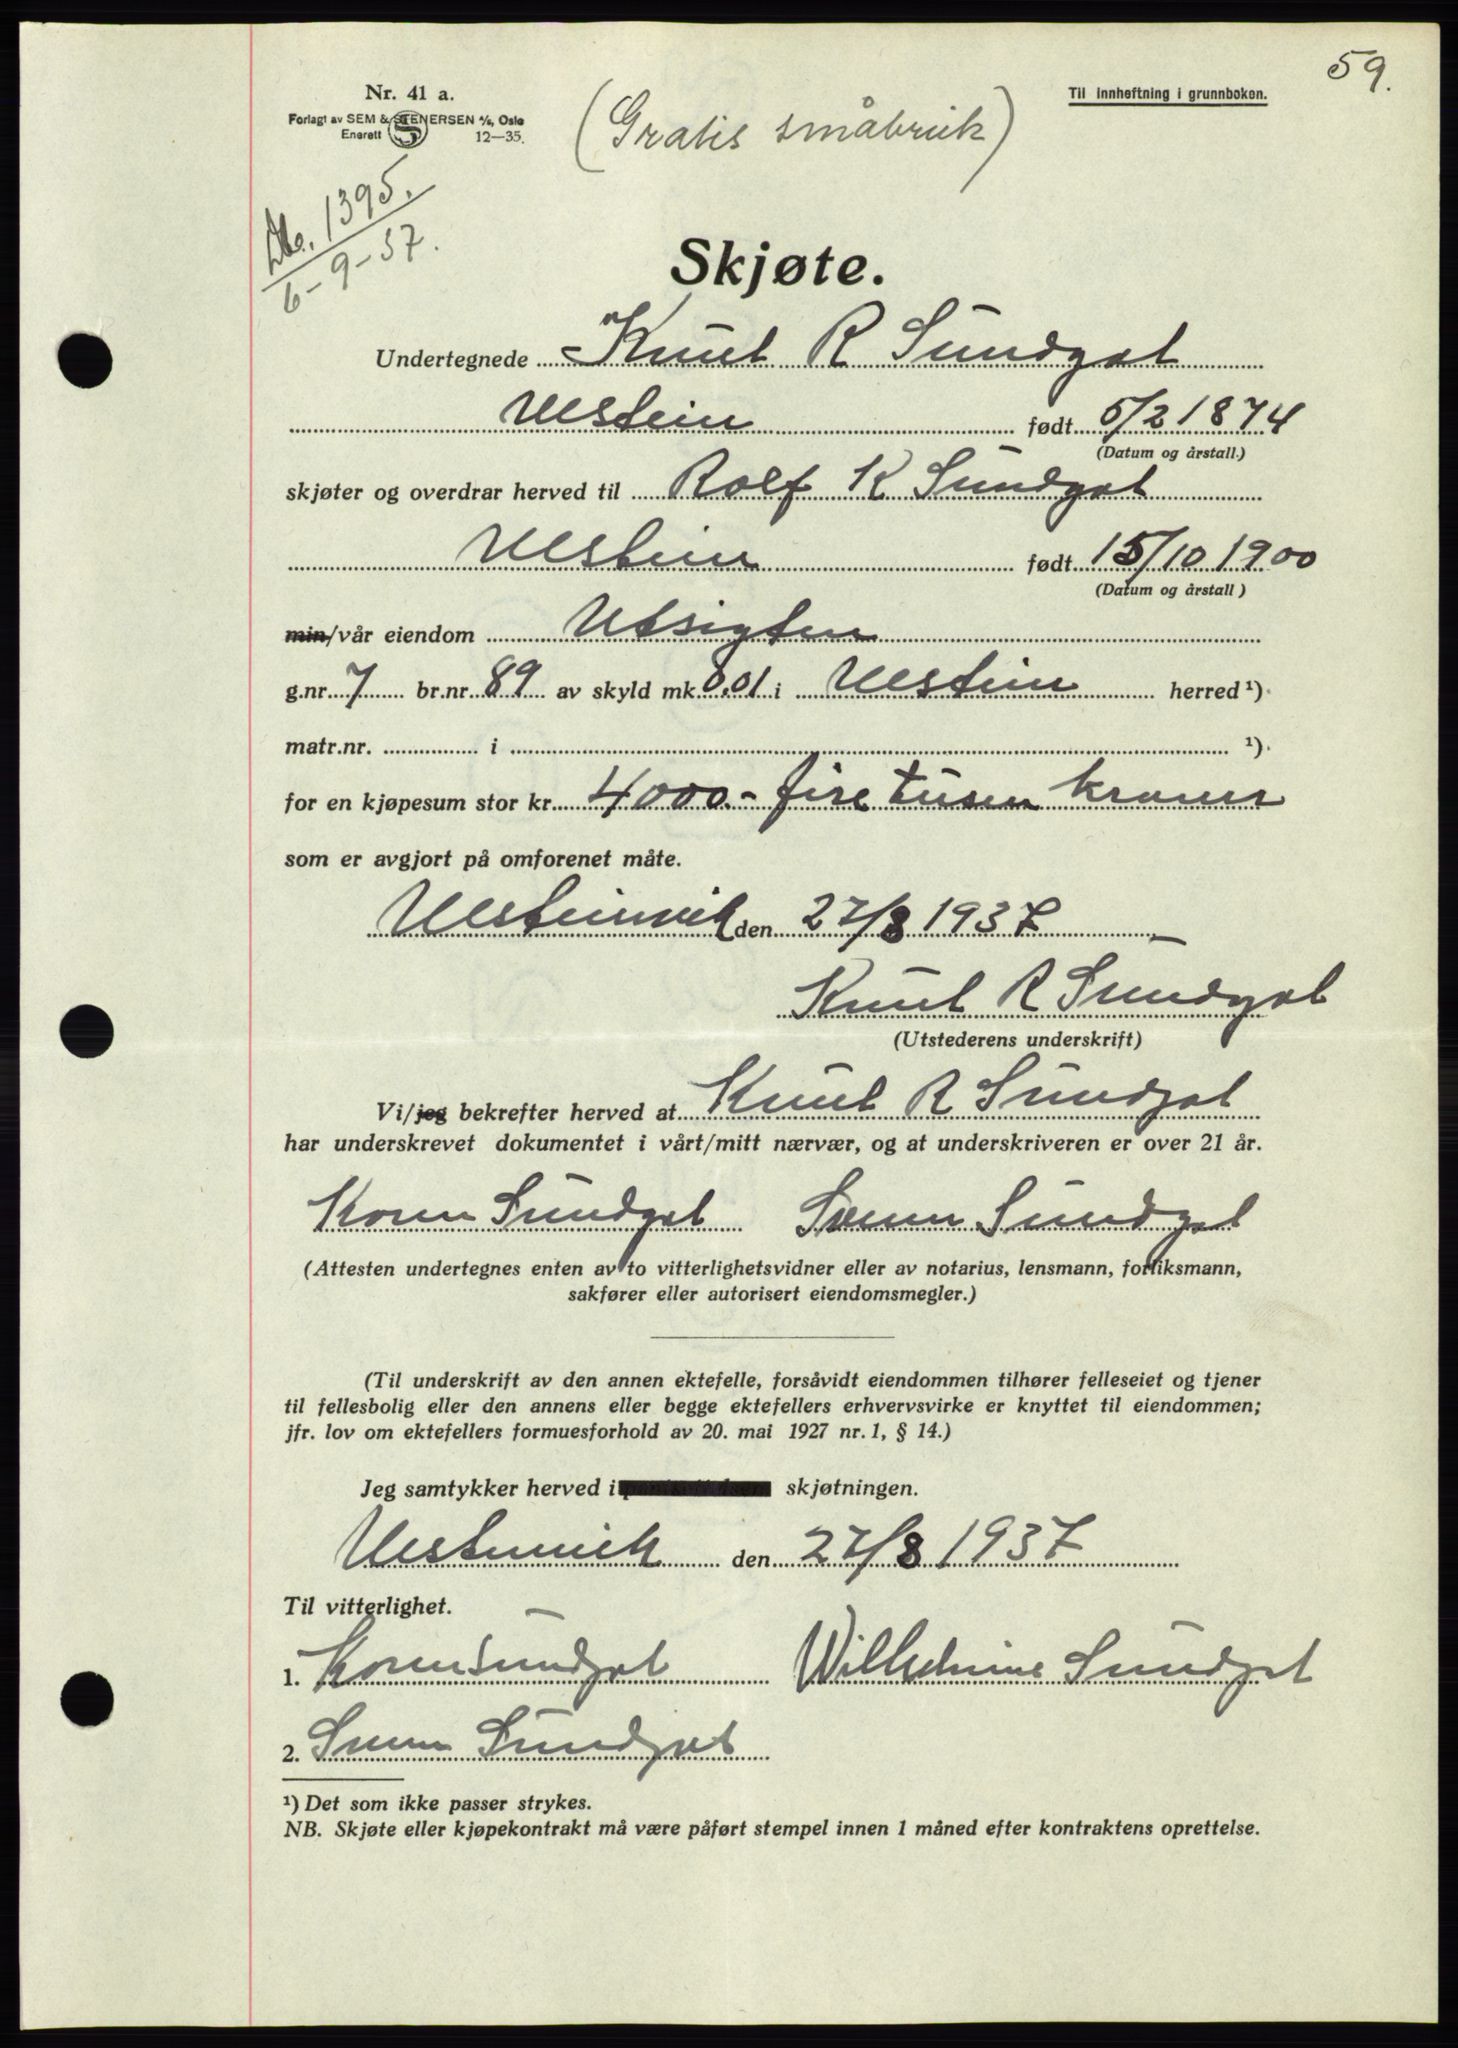 59.
Nr. 41 a.
Til innheftning i grunnboken.
Forlagt av SEM & STENERSEN A/S, Oslo
Enerett 12-35.
(Gratis småbruk)
Dbo. 1395.
6-9-37.
Skjøte.
Undertegnede Knut R Sundgot
Ulstein født 5/2 1874
(Datum og årstall.)
skjøter og overdrar herved til Rolf K Sundgot
Ulstein født 15/10 1900
(Datum og årstall)
min/vår eiendom Utsigten
g.nr. 7 br.nr. 89 av skyld mk. 0,01 i Ulstein herred ¹).
matr.nr. i ¹).
for en kjøpesum stor kr. 4000.- fire tusen kroner
som er avgjort på omforenet måte.
Ulsteinvik den 27/8 1937
Knut R Sundgot
(Utstederens underskrift)
Vi/jeg bekrefter herved at Knut R Sundgot
har underskrevet dokumentet i vårt/mitt nærvær, og at underskriveren er over 21 år.
Koren Sundgot Svenn Sundgot
(Attesten undertegnes enten av to vitterlighetsvidner eller av notarius, lensmann, forliksmann,
sakfører eller autorisert eiendomsmegler.)
(Til underskrift av den annen ektefelle, forsåvidt eiendommen tilhører felleseiet og tjener
til fellesbolig eller den annens eller begge ektefellers erhvervsvirke er knyttet til eiendommen;
jfr. lov om ektefellers formuesforhold av 20. mai 1927 nr. 1, § 14.)
Jeg samtykker herved i skjøtningen.
Ulsteinvik den 27/8 1937
Til vitterlighet.
1. Koren Sundgot Wilhelmine Sundgot
2. Svenn Sundgot
¹) Det som ikke passer strykes.
NB. Skjøte eller kjøpekontrakt må være påført stempel innen 1 måned efter kontraktens oprettelse.